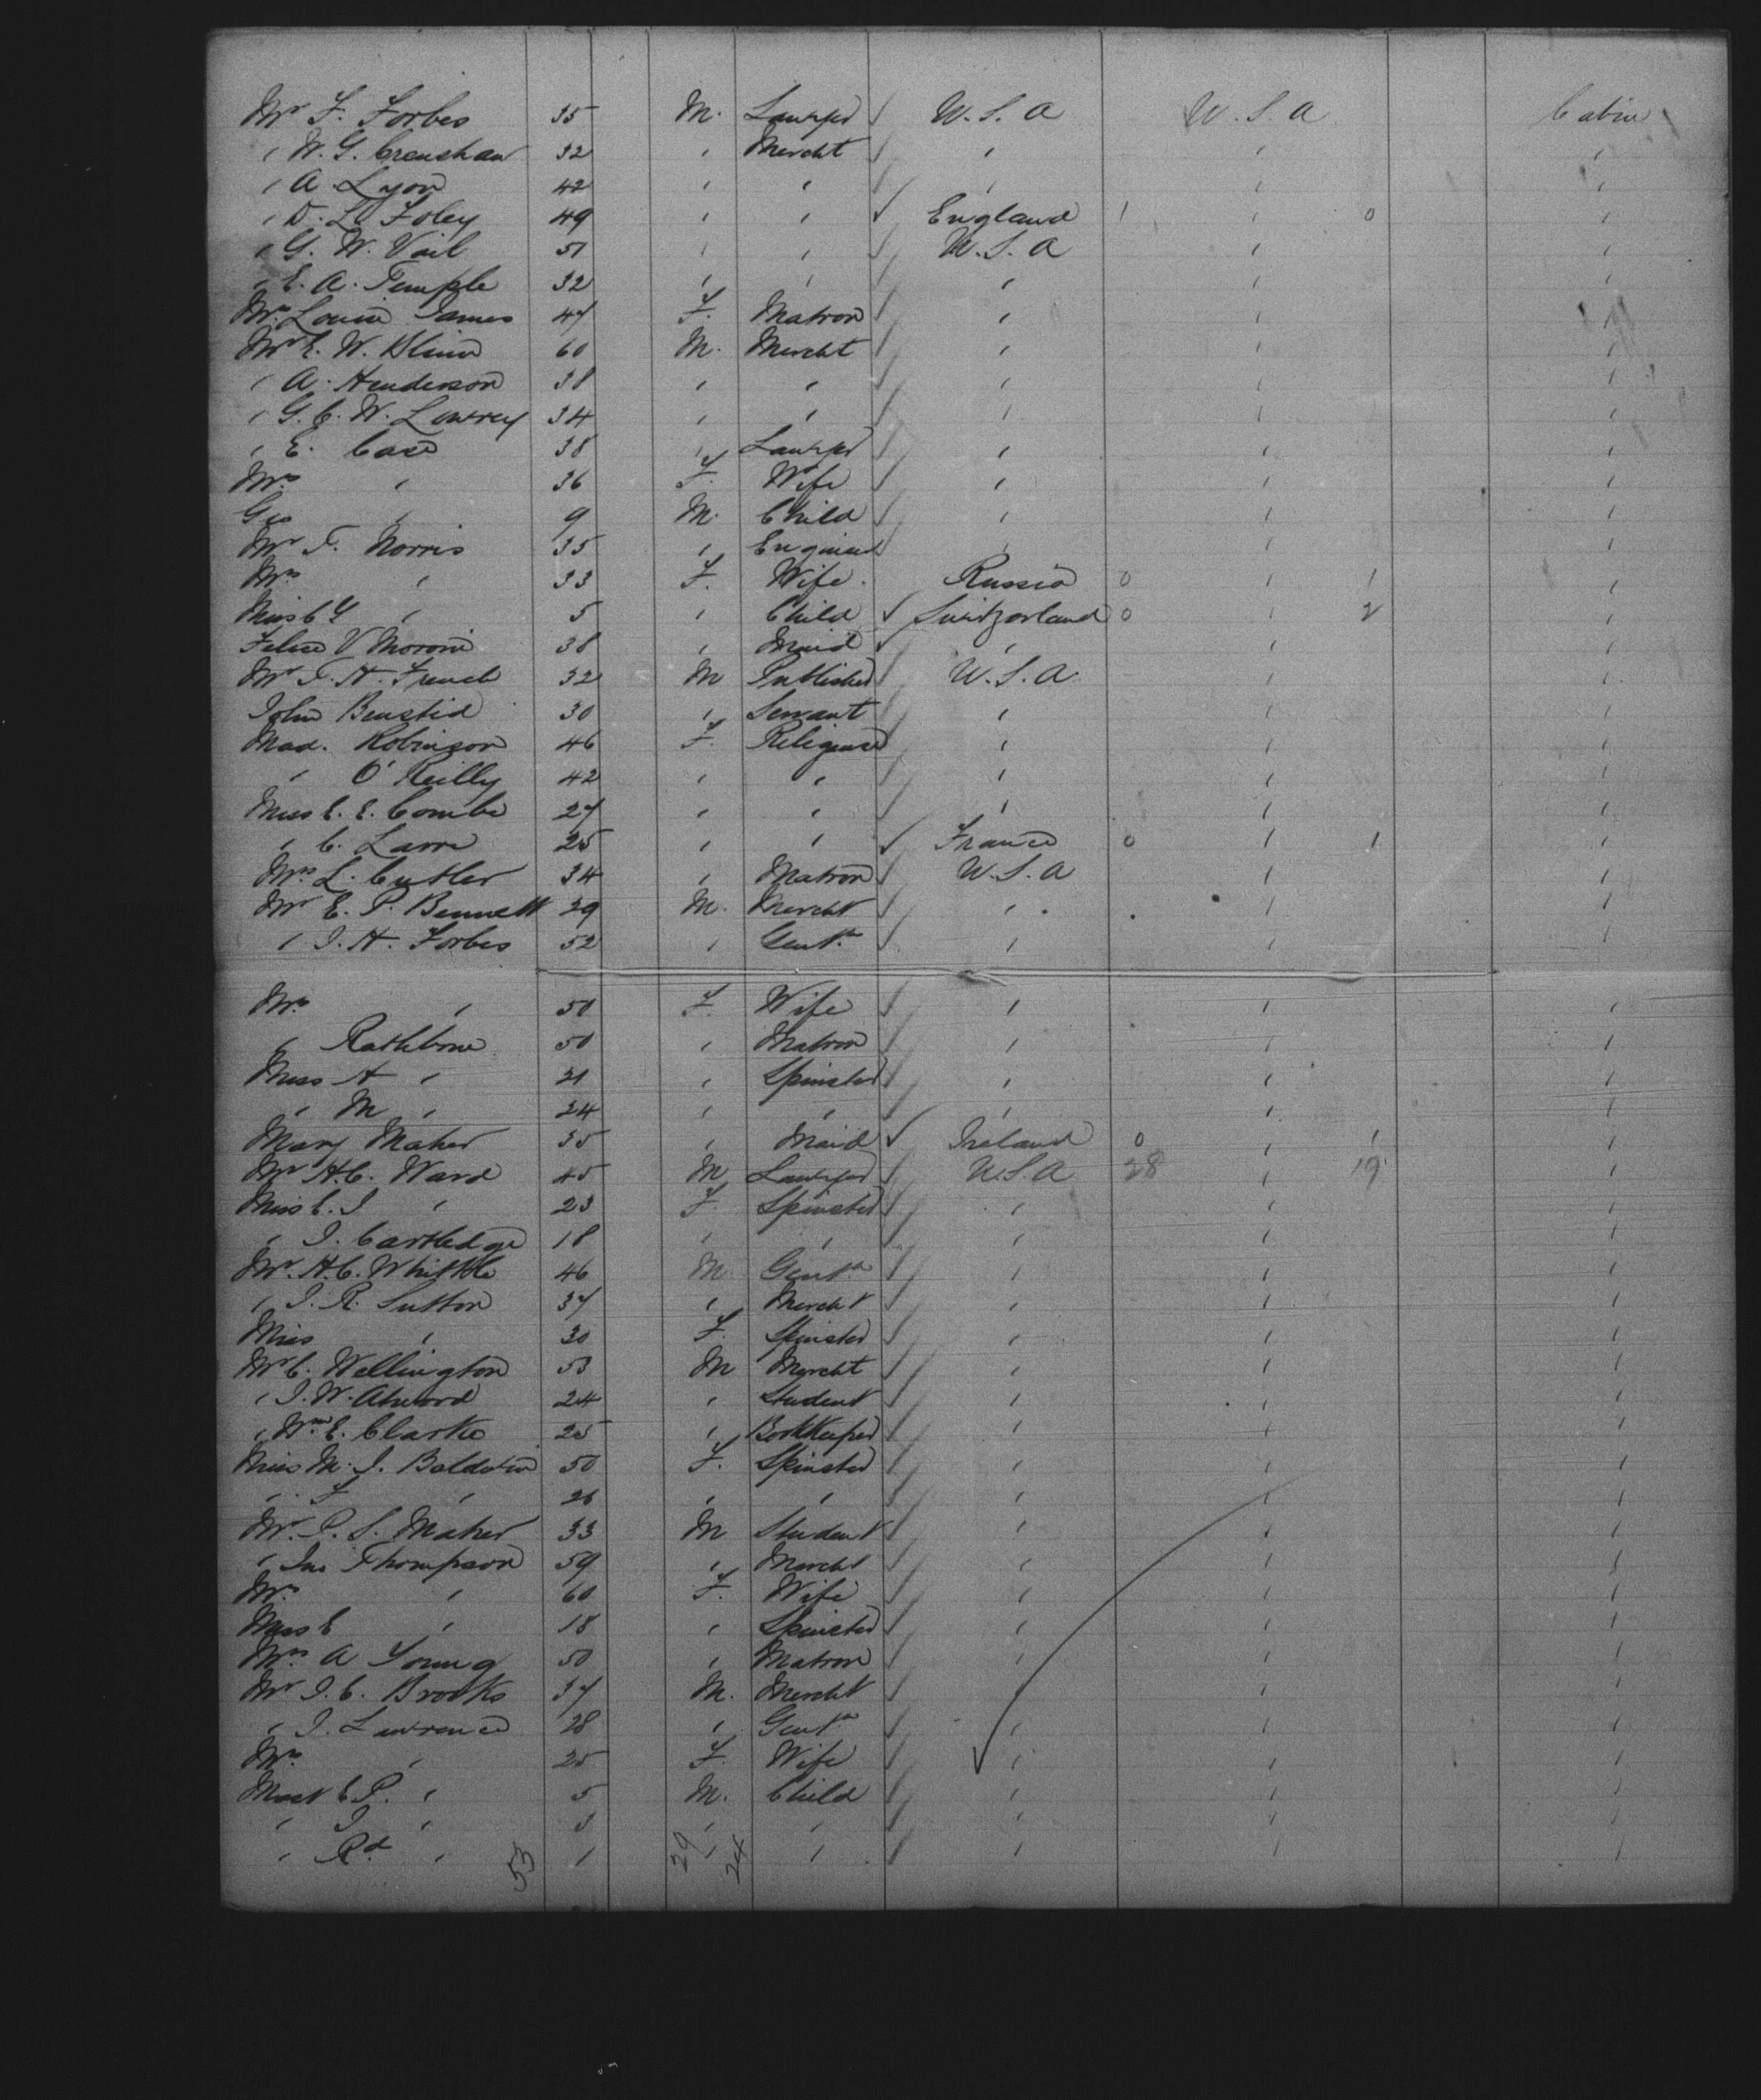 Mr F. Forbes 35 M. Lawyer U.S.A U.S.A Cabin
" W. G. Crenshaw 32 " Mercht " " "
" A Lyon 42 " " " " "
" D. L. Foley 49 " " England 1 " 0 "
" G. W. Vail 51 " " U.S.A " "
" E. A. Temple 32 " " " " "
Mrs Louise James 47 F. Matron " " "
Mr E. W. 60 M. Mercht " " "
" A. Henderson 38 " " " " "
" G. C. W. Lowrey 34 " " " " "
" E. Case 38 " Lawyer " " "
Mrs " 36 F. Wife " " "
Geo " 9 M. Child " " "
Mr T. Norris 35 " Engineer " " "
Mrs " 33 F. Wife. Russia 0 " 1 "
Miss C Y " 5 " Child Switzerland 0 " 2 "
V Moroni 38 " Maid " " "
Mr T. H. French 32 M Publisher U.S.A. " "
John 30 " Servant " " "
Mad. Robinson 46 F. Religeuse " " "
" O'Reilly 42 " " " " "
Miss E. E. Combe 27 " " " " "
" C. 25 " " France 0 " 1 "
Mrs L. Cutler 34 " Matron U.S.A " "
Mr E. P. Bennett 29 M. Mercht " " "
" J. H. Forbes 52 " Gentn " " "
Mrs " 50 F. Wife " " "
" Rathbone 50 " Matron " " "
Miss A " 21 " Spinster " " "
" M " 24 " " " " "
Mary Maher 35 " Maid Ireland 0 " 1 "
Mr H.C. Ward 45 M Lawyer U.S.A 28 " 19 "
Miss E. J " 23 F. Spinster " " "
" J. Cartledge 18 " " " " "
Mr. H.C. Whittle 46 M. Gentn " " "
" J. R. Sutton 37 " Mercht " " "
Miss " 30 F. Spinster " " "
Mr C. Wellington 53 M Mercht " " "
" J. W. Atwood 24 " Student " " "
" Wm E. Clarke 25 " Bookkeeper " " "
Miss M. J. Baldwin 50 F. Spinster " " "
" F " 26 " " " " "
Mr. P. S. Maher 33 M Student " " "
" Jno Thompson 59 " Mercht " " "
Mrs " 60 F. Wife " " "
Miss E " 18 " Spinster " " "
Mrs A Young 50 " Matron " " "
Mr J. C. Brooks 37 M. Mercht " " "
" J. Lawrence 28 " Gentn " " "
Mrs " 25 F. Wife " " "
Mast E P. " 5 M. Child " " "
" J " 3 " " " " "
" Rd " 1 " " " " "
53 29 24